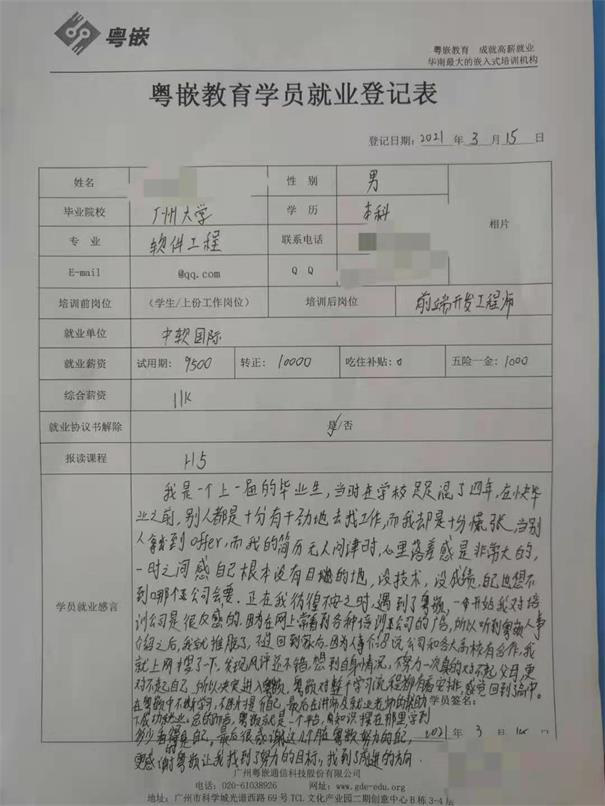 粤嵌
粤嵌教育 成就高薪就业
华南最大的嵌入式培训机构
粤嵌教育学员就业登记表
登记日期：2021 年 3 月 15 日
姓名 性别 男
毕业院校 广州大学 学历 本科 相片
专业 软件工程 联系电话
E-mail @qq.com Q Q
培训前岗位 （学生/上份工作岗位） 培训后岗位 前端开发工程师
就业单位 中软国际
就业薪资 试用期：9500 转正：10000 吃住补贴：0 五险一金：1000
综合薪资 11K
就业协议书解除 是/否
报读课程 H5
学员就业感言
我是一个上一届的毕业生，当时在学校足足混了四年，在快毕
业之前，别人都是十分有干劲地去找工作，而我却是十分慌张，当别
人拿到offer，而我的简历无人问津时，心里落差感是非常大的，
一时之间感自己根本没有目的地，没技术，没成绩，自己也想不
到哪个公司会要。正在我彷徨不安之时，遇到了粤嵌，一开始我对培
训公司是很反感的，因为在网上常看到各种培训公司的广告，所以听到粤嵌人事
介绍之后，我就推脱了，不过回到家后，因为人事介绍说公司和各大高校有合作，我
就上网搜了一下，发现风评还不错，想到自身情况，不努力一次真的对不起父母，更
对不起自己，所以决定进入粤嵌，粤嵌对整个学习流程都有安排，感觉回到高中。
在粤嵌中不断学习，不断提升自己，最后在讲师及就业老师的帮助
学员签名：
下成功就业。总的而言，粤嵌就是一个平台，知识摆在那里，学到
多少看自己。最后很感谢这个在粤嵌努力的自己，
2021 年 3 月
更感谢粤嵌让我找到了努力的目标，找到了前进的方向
广州粤嵌通信科技股份有限公司
电话：020-61038926 网址：www.gde-edu.org
地址：广州市科学城光谱西路 69 号 TCL 文化产业园二期创意中心 B 栋 3-4 层